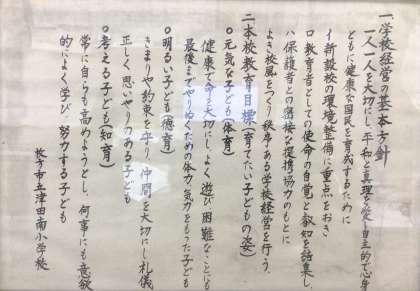 一、学校経営の基本方針
一人一人を大切にし、平和と真理を愛し自主的で心身
ともに健康な国民を育成するために
イ 新設校の環境整備に重点をおき
ロ 教育者としての使命の自覚と叡知を結集し、
ハ 保護者との密接な提携協力のもとに
よき校風をつくり秩序ある学校経営を行う。
二、本校教育目標(育てたい子どもの姿)
○元気な子ども(体育)
健康で命を大切にし、よく遊び困難なことにも
最後までやりぬくための体力、気力をもった子ども
○明るい子ども(徳育)
きまりや約束を守り、仲間を大切にし礼儀
正しく、思いやりのある子ども
○考える子ども(知育)
常に自らを高めようとし、何事にも意欲
的によく学び、努力する子ども
枚方市立津田南小学校